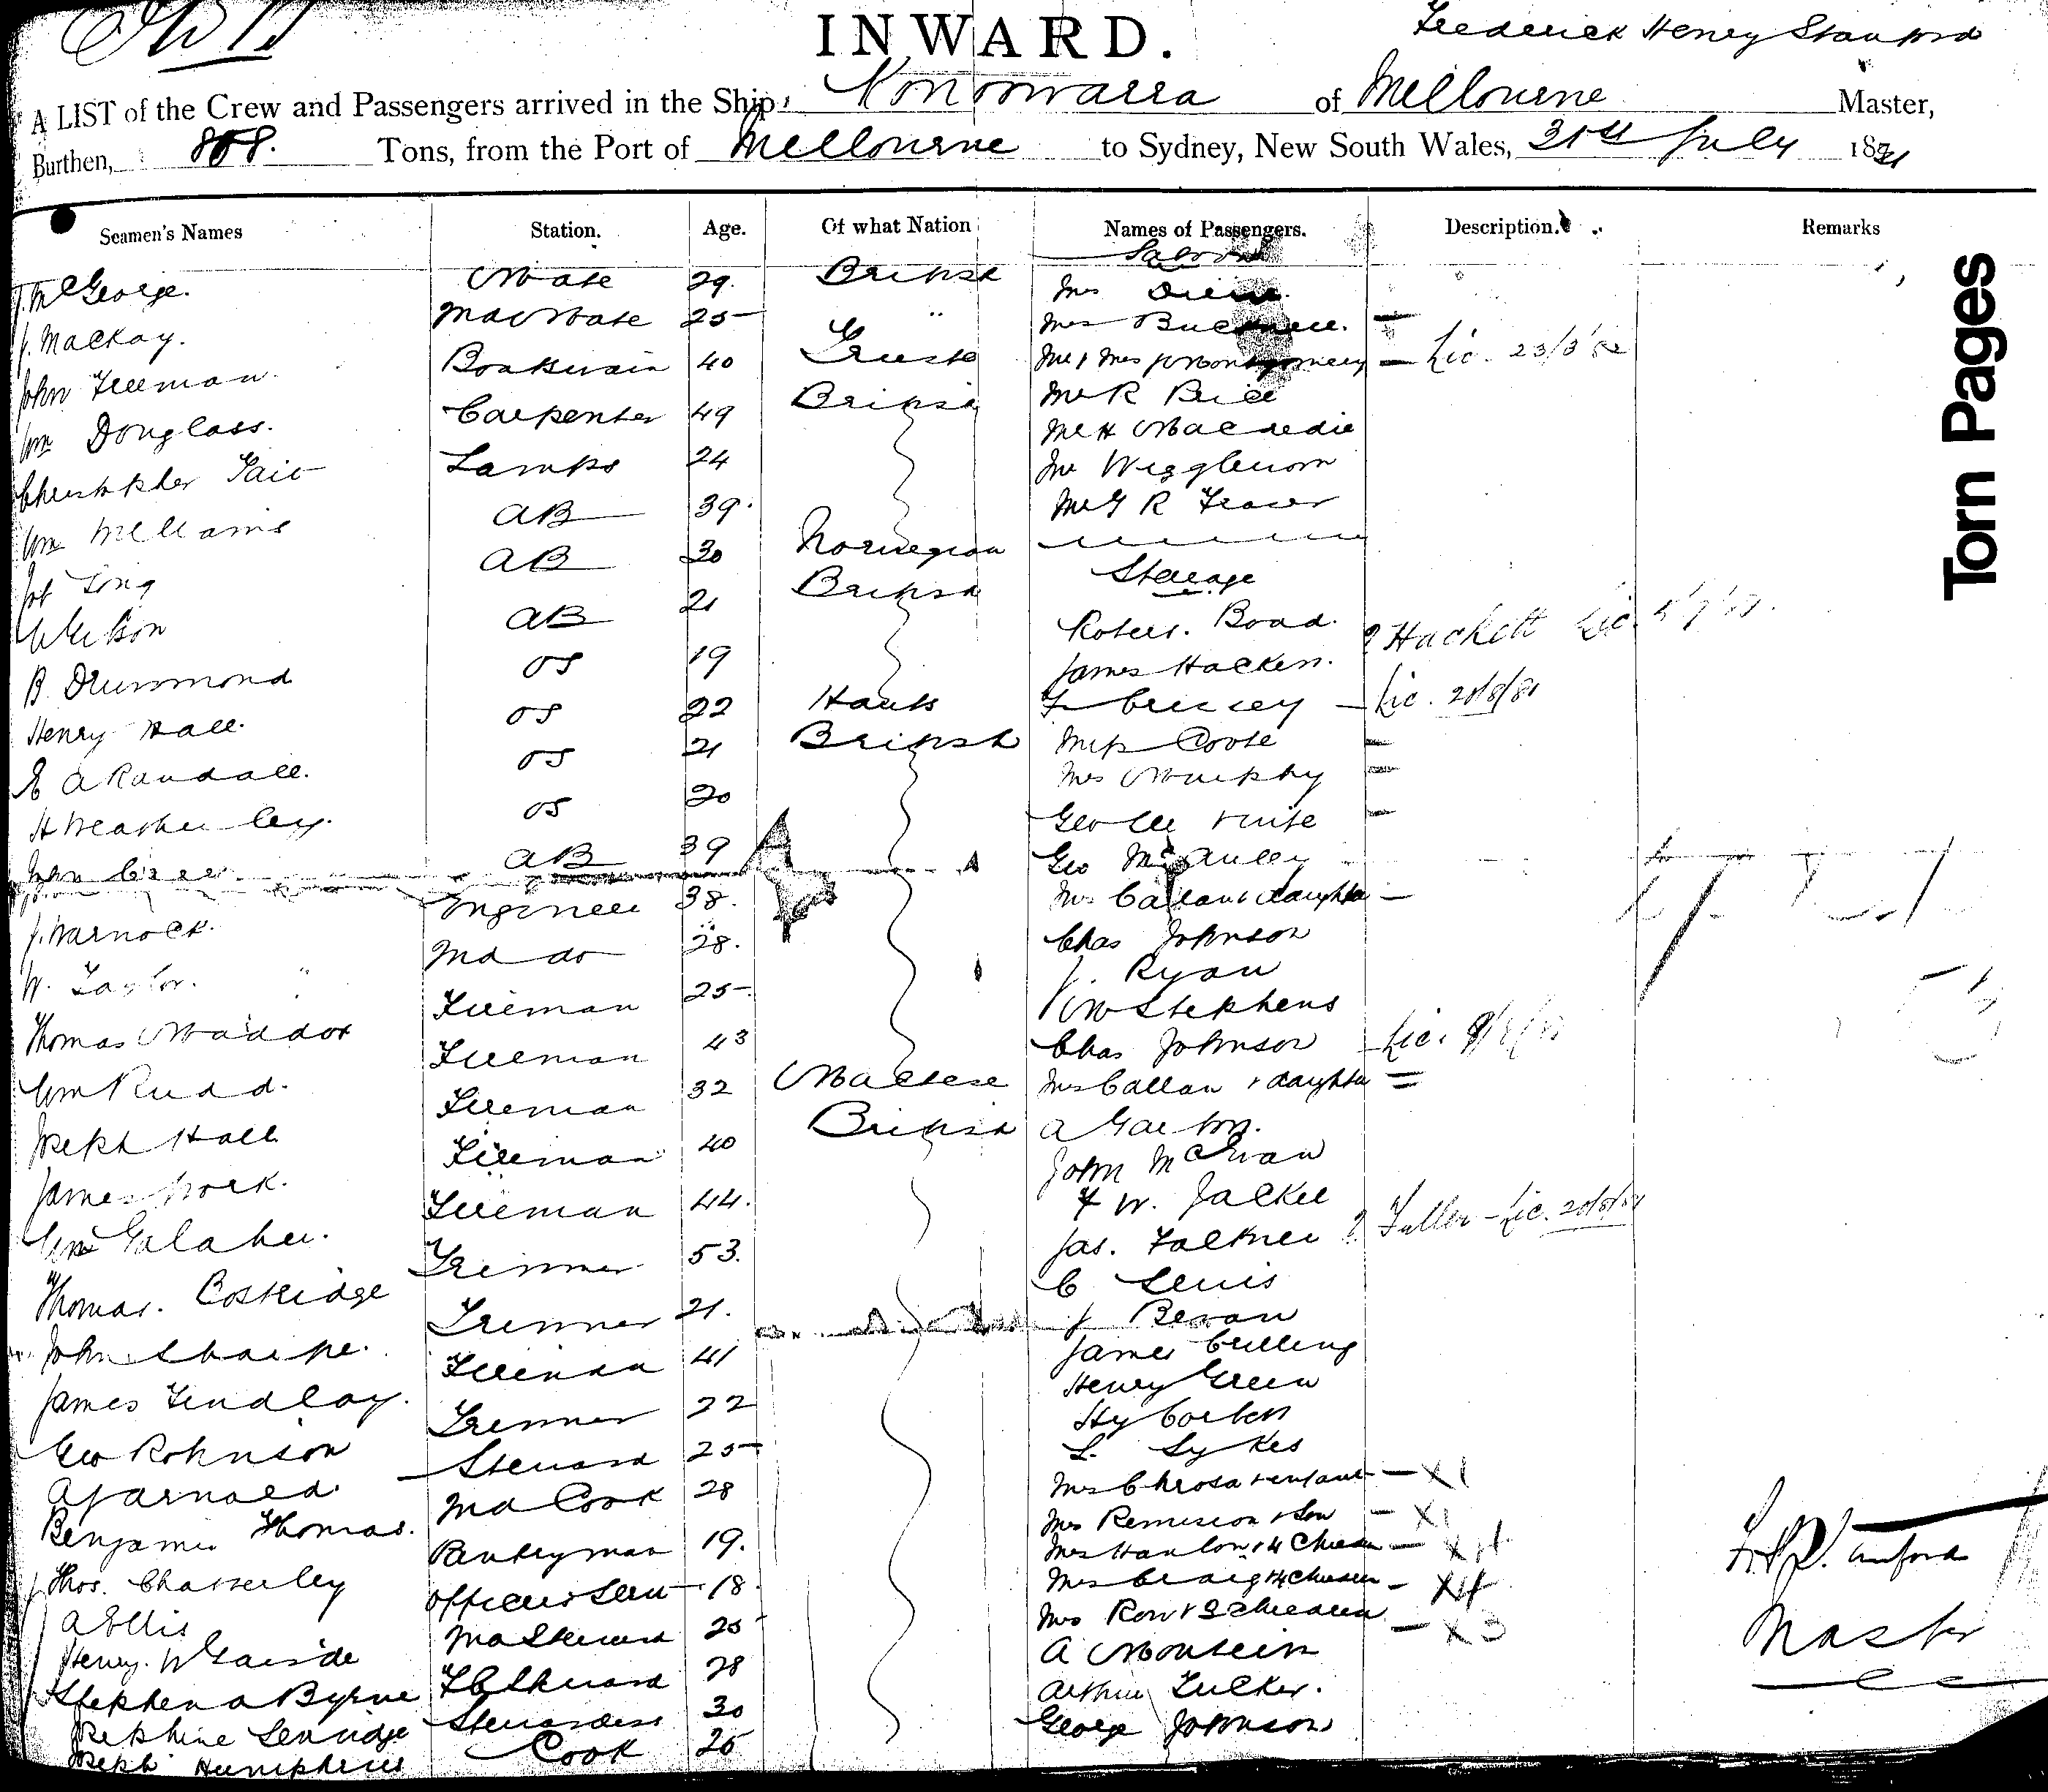 INWARD.
Frederick Henry Stanford
A LIST of the Crew and Passengers arrived in the Ship, Konoowarra of Melbourne Master,
Burthen, 808. Tons, from the Port of Melbourne to Sydney, New South Wales, 31st July 18
Torn Pages
Seamen's Names Station. Age. Of what Nation Names of Passengers. Description. Remarks
Saloon
J. McGeorge. Mate 29. British Mrs
J. Mackay. 2nd Mate 25 " Mrs Bucknell. —
John Freeman. Boatswain 40 Greek Mr & Mrs J Montgomery — Lic. 23/3/82
Wm Douglass. Carpenter 49 British Mr R Price
Christopher Tait Lamps 24 Mr H Macredie
Wm Williams AB 39. Mr
Jos Long AB 30 Norwegian Mr G R Fraser
AB 21 British Steerage
B. Drummond OS 19 Robert. Boad.
Henry Hall. OS 22 Hants James Hackett. ? Hackett Lic.
E A Randall. OS 21 British F — Lic. 20/8/81
H Weatherley. OS 20 Mrs Coote —
John Greer. AB 39 Mrs Murphy —
J. Warnock. Engineer 38. Geo Lee & wife —
W. Taylor. " 2nd do 28. Geo McAuley
Thomas Maddox Fireman 25 Mrs Callan & daughter —
Wm Rudd. Fireman 43 Chas Johnson
Joseph Hall Fireman 32 Maltese J. Ryan
James Fireman 40 British W Stephens
Wm Galaher. Fireman 44. Chas Johnson Lic.
Thomas. Coskridge Trimmer 53. Mrs Callan & daughter =
John Sharpe. Trimmer 21. A
James Findlay. Fireman 41 John McEwan
Geo Robinson Trimmer 22 F W. Jackel
A J Arnold. Steward 25 Jas. Falkner ? Fuller - Lic. 20/8/81
Benjamin Thomas. 2nd Cook 28 C Lewis
Thos. Chatterley Pantryman 19. J Bevan
A Ellis Officers Serv 18. James Culling
Henry. W Garside 2nd Steward 25 Henry Green
Stephen A Byrne F C Steward 28 Hy Corbett
Josephine Stewardess 30 L. Sykes
Joseph Humphries Cook 25 Mrs & infant — X1
Mrs & Son — X1
Mrs Hanlon & 4 Children — X4
Mrs Craig & 4 Children — X4
Mrs Row & 3 Children — X3
A
Arthur Tucker.
George Johnson
F. H. Stanford
Master